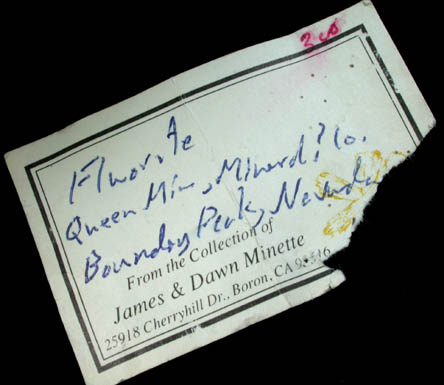 300
Fluorite
Queen Mine, Mineral? Co.
Boundry Peak, Nevada
From the Collection of
James & Dawn Minette
25918 Cherryhill Dr., Boron, CA 93516